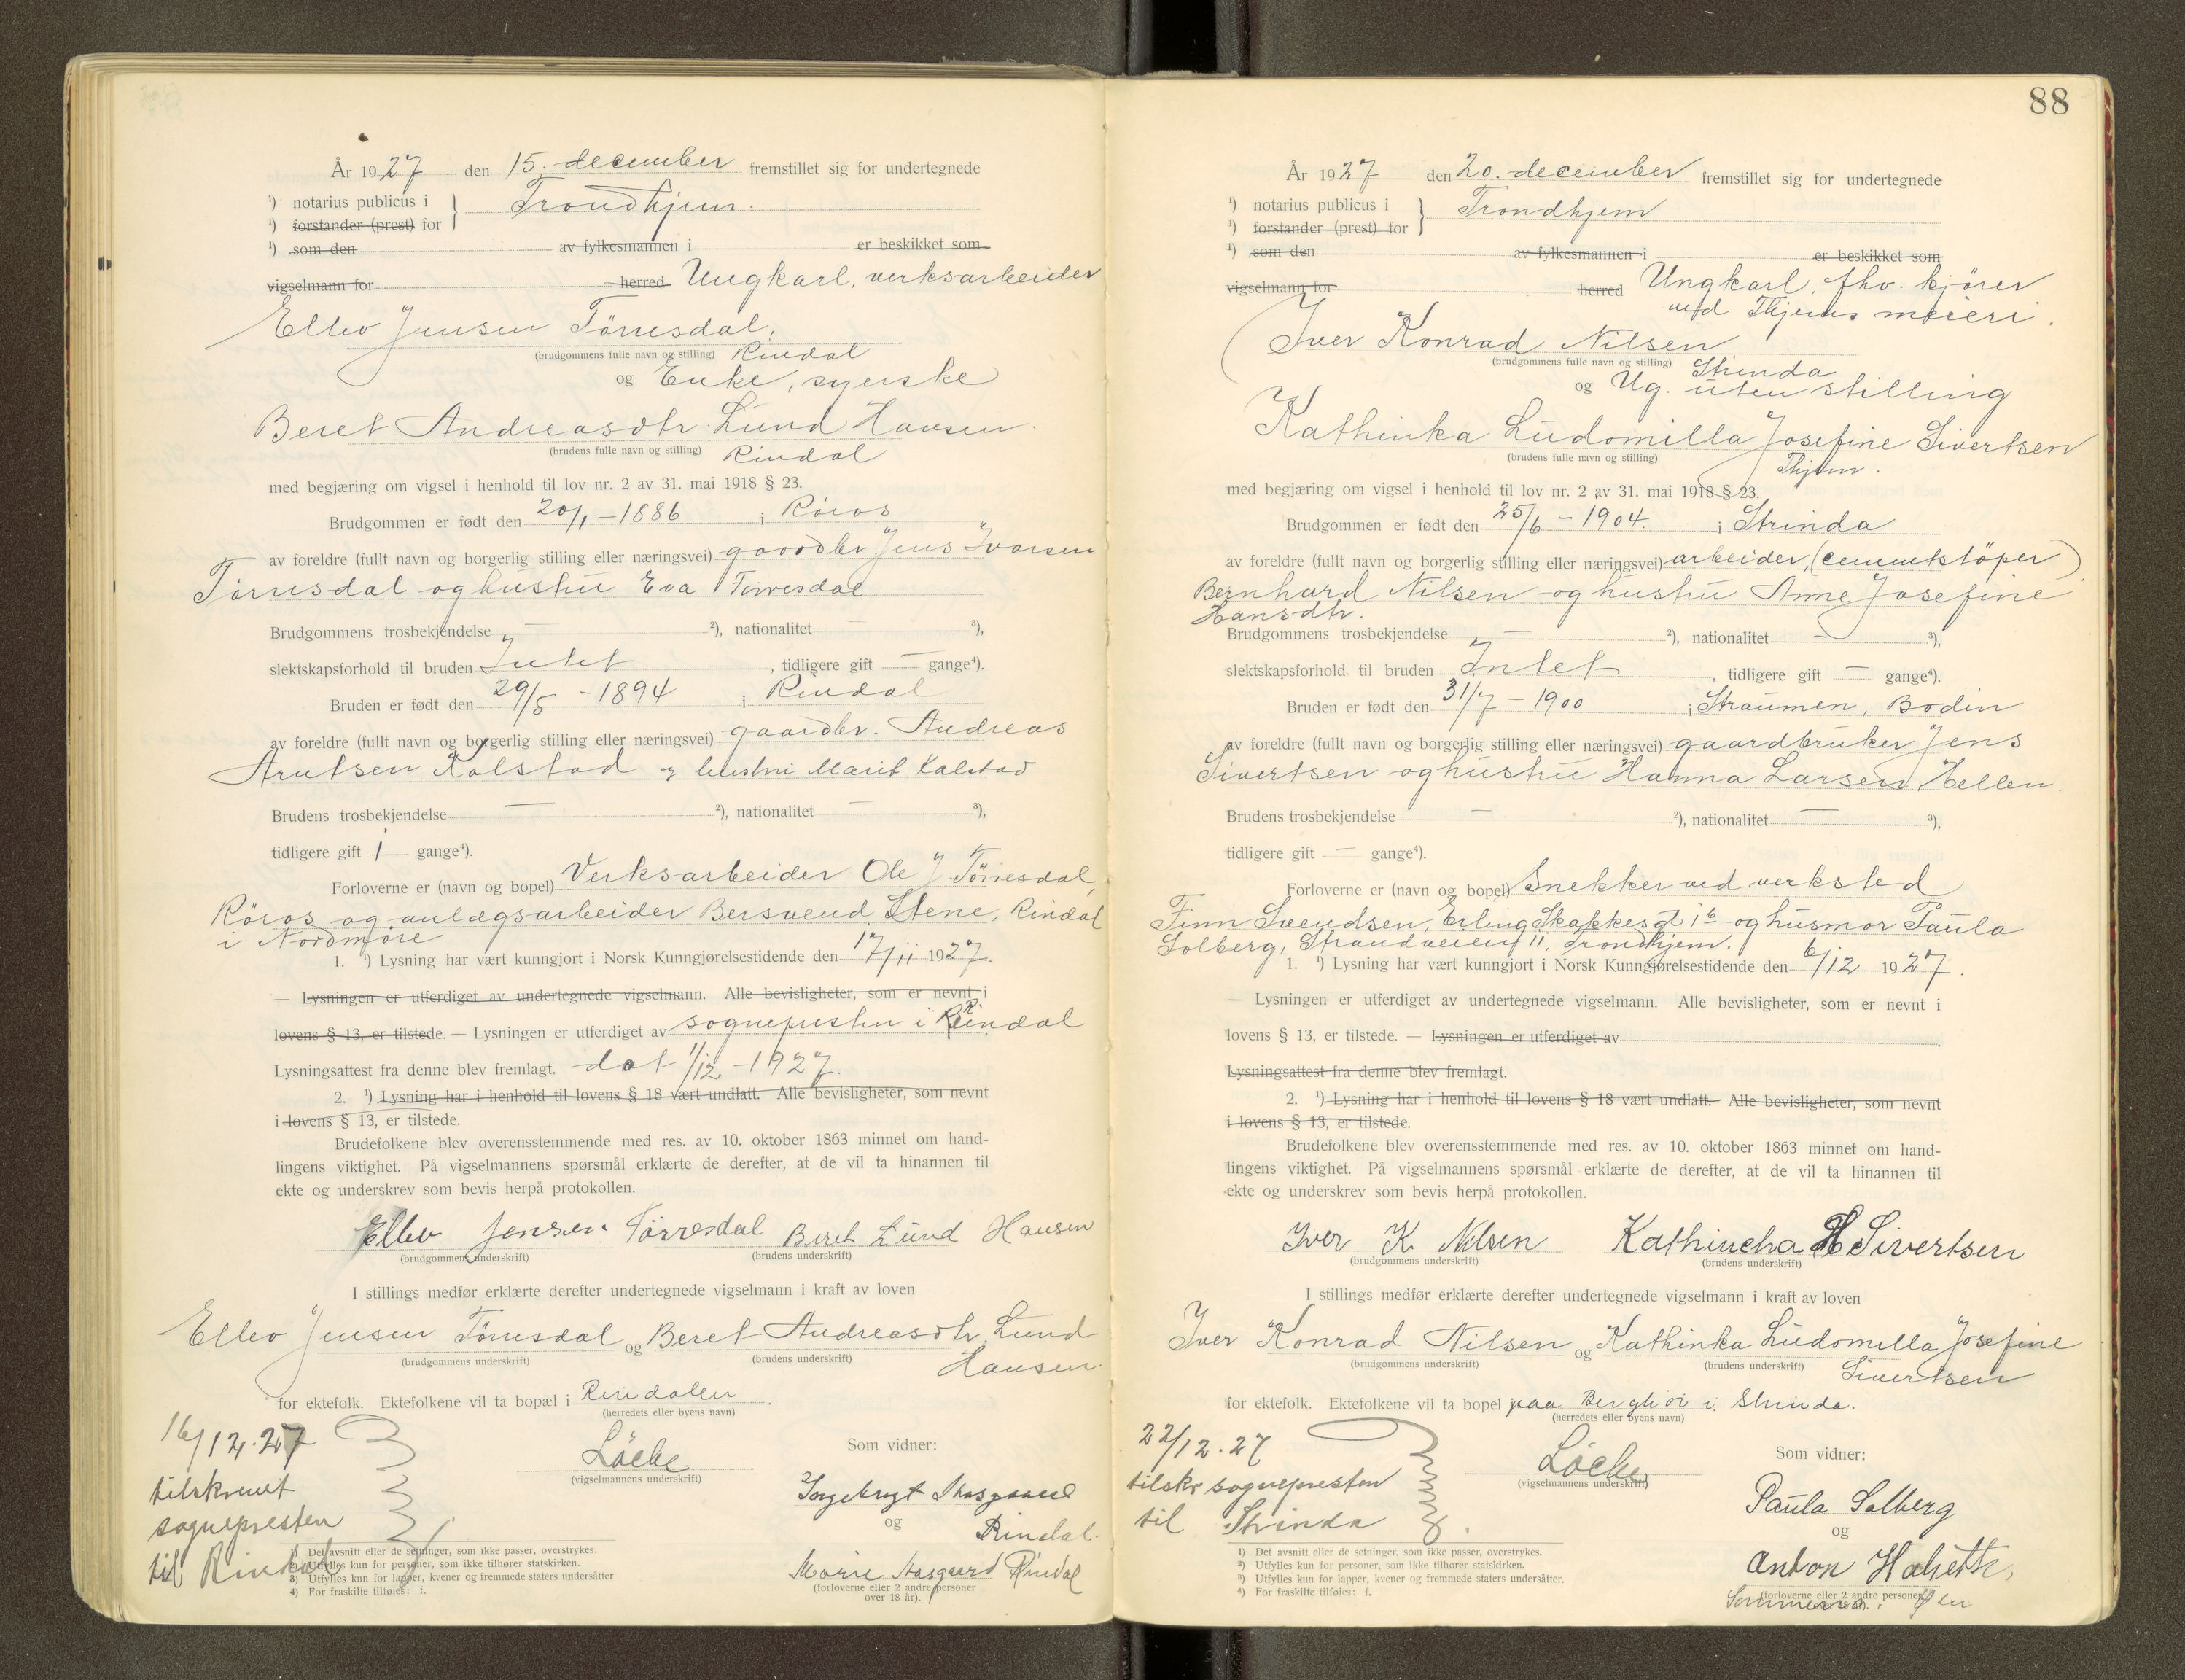 År 1927 den 15. december fremstillet sig for undertegnede
¹) notarius publicus i } Trondhjem.
¹) forstander (prest) for
¹) som den av fylkesmannen i er beskikket som
vigselmann for herred Ungkarl, verksarbeider
Ellev Jensen Törresdal,
(brudgommens fulle navn og stilling) Rindal
og Enke, syerske
Beret Andreasdtr. Lund Hansen.
(brudens fulle navn og stilling) Rindal
med begjæring om vigsel i henhold til lov nr. 2 av 31. mai 1918 § 23.
Brudgommen er født den 20/1 - 1886 i Röros
av foreldre (fullt navn og borgerlig stilling eller næringsvei) gaardbr Jens Ivarsen
Törresdal og hustru Eva Törresdal
Brudgommens trosbekjendelse — ²), nationalitet — ³),
slektskapsforhold til bruden Intet, tidligere gift — gange⁴).
Bruden er født den 29/5 - 1894 i Rindal
av foreldre (fullt navn og borgerlig stilling eller næringsvei) gaardbr. Andreas
Arntsen Kalstad og hustru Marit Kalstad
Brudens trosbekjendelse — ²), nationalitet — ³),
tidligere gift 1 gange⁴).
Forloverne er (navn og bopel) Verksarbeider Ole J. Törresdal,
Röros og anlægsarbeider Bersvend Stene, Rindal
i Nordmöre
1. ¹) Lysning har vært kunngjort i Norsk Kunngjørelsestidende den 17/11 1927.
— Lysningen er utferdiget av undertegnede vigselmann. Alle bevisligheter, som er nevnt i
lovens § 13, er tilstede. — Lysningen er utferdiget av sognepresten i Rindal
Lysningsattest fra denne blev fremlagt. dat 1/12 - 1927.
2. ¹) Lysning har i henhold til lovens § 18 vært undlatt. Alle bevisligheter, som nevnt
i lovens § 13, er tilstede.
Brudefolkene blev overensstemmende med res. av 10. oktober 1863 minnet om hand-
lingens viktighet. På vigselmannens spørsmål erklærte de derefter, at de vil ta hinannen til
ekte og underskrev som bevis herpå protokollen.
Ellev Jensen Törresdal Beret Lund Hansen
(brudgommens underskrift) (brudens underskrift)
I stillings medfør erklærte derefter undertegnede vigselmann i kraft av loven
Ellev Jensen Törresdal og Beret Andreasdtr. Lund
(brudgommens underskrift) (brudens underskrift) Hansen
for ektefolk. Ektefolkene vil ta bopæl i Rindalen.
(herredets eller byens navn)
16/12.27
tilskrevet
sognepresten
til Rindal
Löcke
(vigselmannens underskrift)
Som vidner:
Ingebrigt Aasgaard
og Rindal.
Marie Aasgaard Rindal
(forloverne eller 2 andre personer
over 18 år).
1) Det avsnitt eller de setninger, som ikke passer, overstrykes.
2) Utfylles kun for personer, som ikke tilhører statskirken.
3) Utfylles kun for lapper, kvener og fremmede staters undersåtter
4) For fraskilte tilføies: f.
88
År 1927 den 20. december fremstillet sig for undertegnede
¹) notarius publicus i } Trondhjem
¹) forstander (prest) for
¹) som den av fylkesmannen i er beskikket som
vigselmann for herred Ungkarl, fhv. kjörer
ved Thjems meieri.
Iver Konrad Nilsen
(brudgommens fulle navn og stilling) Strinda
og Ug. uten stilling
Kathinka Ludomilla Josefine Sivertsen
(brudens fulle navn og stilling) Thjem.
med begjæring om vigsel i henhold til lov nr. 2 av 31. mai 1918 § 23.
Brudgommen er født den 25/6 - 1904. i Strinda
av foreldre (fullt navn og borgerlig stilling eller næringsvei) arbeider, (cementstöper)
Bernhard Nilsen og hustru Anne Josefine
Hansdtr.
Brudgommens trosbekjendelse — ²), nationalitet — ³),
slektskapsforhold til bruden Intet, tidligere gift — gange⁴).
Bruden er født den 31/7 - 1900 i Straumen, Bodin
av foreldre (fullt navn og borgerlig stilling eller næringsvei) gaardbruker Jens
Sivertsen og hustru Hanna Larsen Hellen.
Brudens trosbekjendelse — ²), nationalitet — ³),
tidligere gift — gange⁴).
Forloverne er (navn og bopel) Snekker ved verksted
Finn Svendsen, Erling Skakkesgt 1b og husmor Paula
Solberg, Strandveien 11, Trondhjem.
1. ¹) Lysning har vært kunngjort i Norsk Kunngjørelsestidende den 6/12 1927.
— Lysningen er utferdiget av undertegnede vigselmann. Alle bevisligheter, som er nevnt i
lovens § 13, er tilstede. — Lysningen er utferdiget av
Lysningsattest fra denne blev fremlagt.
2. ¹) Lysning har i henhold til lovens § 18 vært undlatt. Alle bevisligheter, som nevnt
i lovens § 13, er tilstede.
Brudefolkene blev overensstemmende med res. av 10. oktober 1863 minnet om hand-
lingens viktighet. På vigselmannens spørsmål erklærte de derefter, at de vil ta hinannen til
ekte og underskrev som bevis herpå protokollen.
Iver K. Nilsen Kathincha Sivertsen
(brudgommens underskrift) (brudens underskrift)
I stillings medfør erklærte derefter undertegnede vigselmann i kraft av loven
Iver Konrad Nilsen og Kathinka Ludomilla Josefine
(brudgommens underskrift) (brudens underskrift) Sivertsen
for ektefolk. Ektefolkene vil ta bopel paa i Strinda.
(herredets eller byens navn)
22/12.27
tilskr sognepresten
til Strinda
Löcke
(vigselmannens underskrift)
Som vidner:
Paula Solberg
og
Anton
(forloverne eller 2 andre personer
1) Det avsnitt eller de setninger, som ikke passer, overstrykes.
2) Utfylles kun for personer, som ikke tilhører statskirken.
3) Utfylles kun for lapper, kvener og fremmede staters undersåtter.
4) For fraskilte tilføies: f.